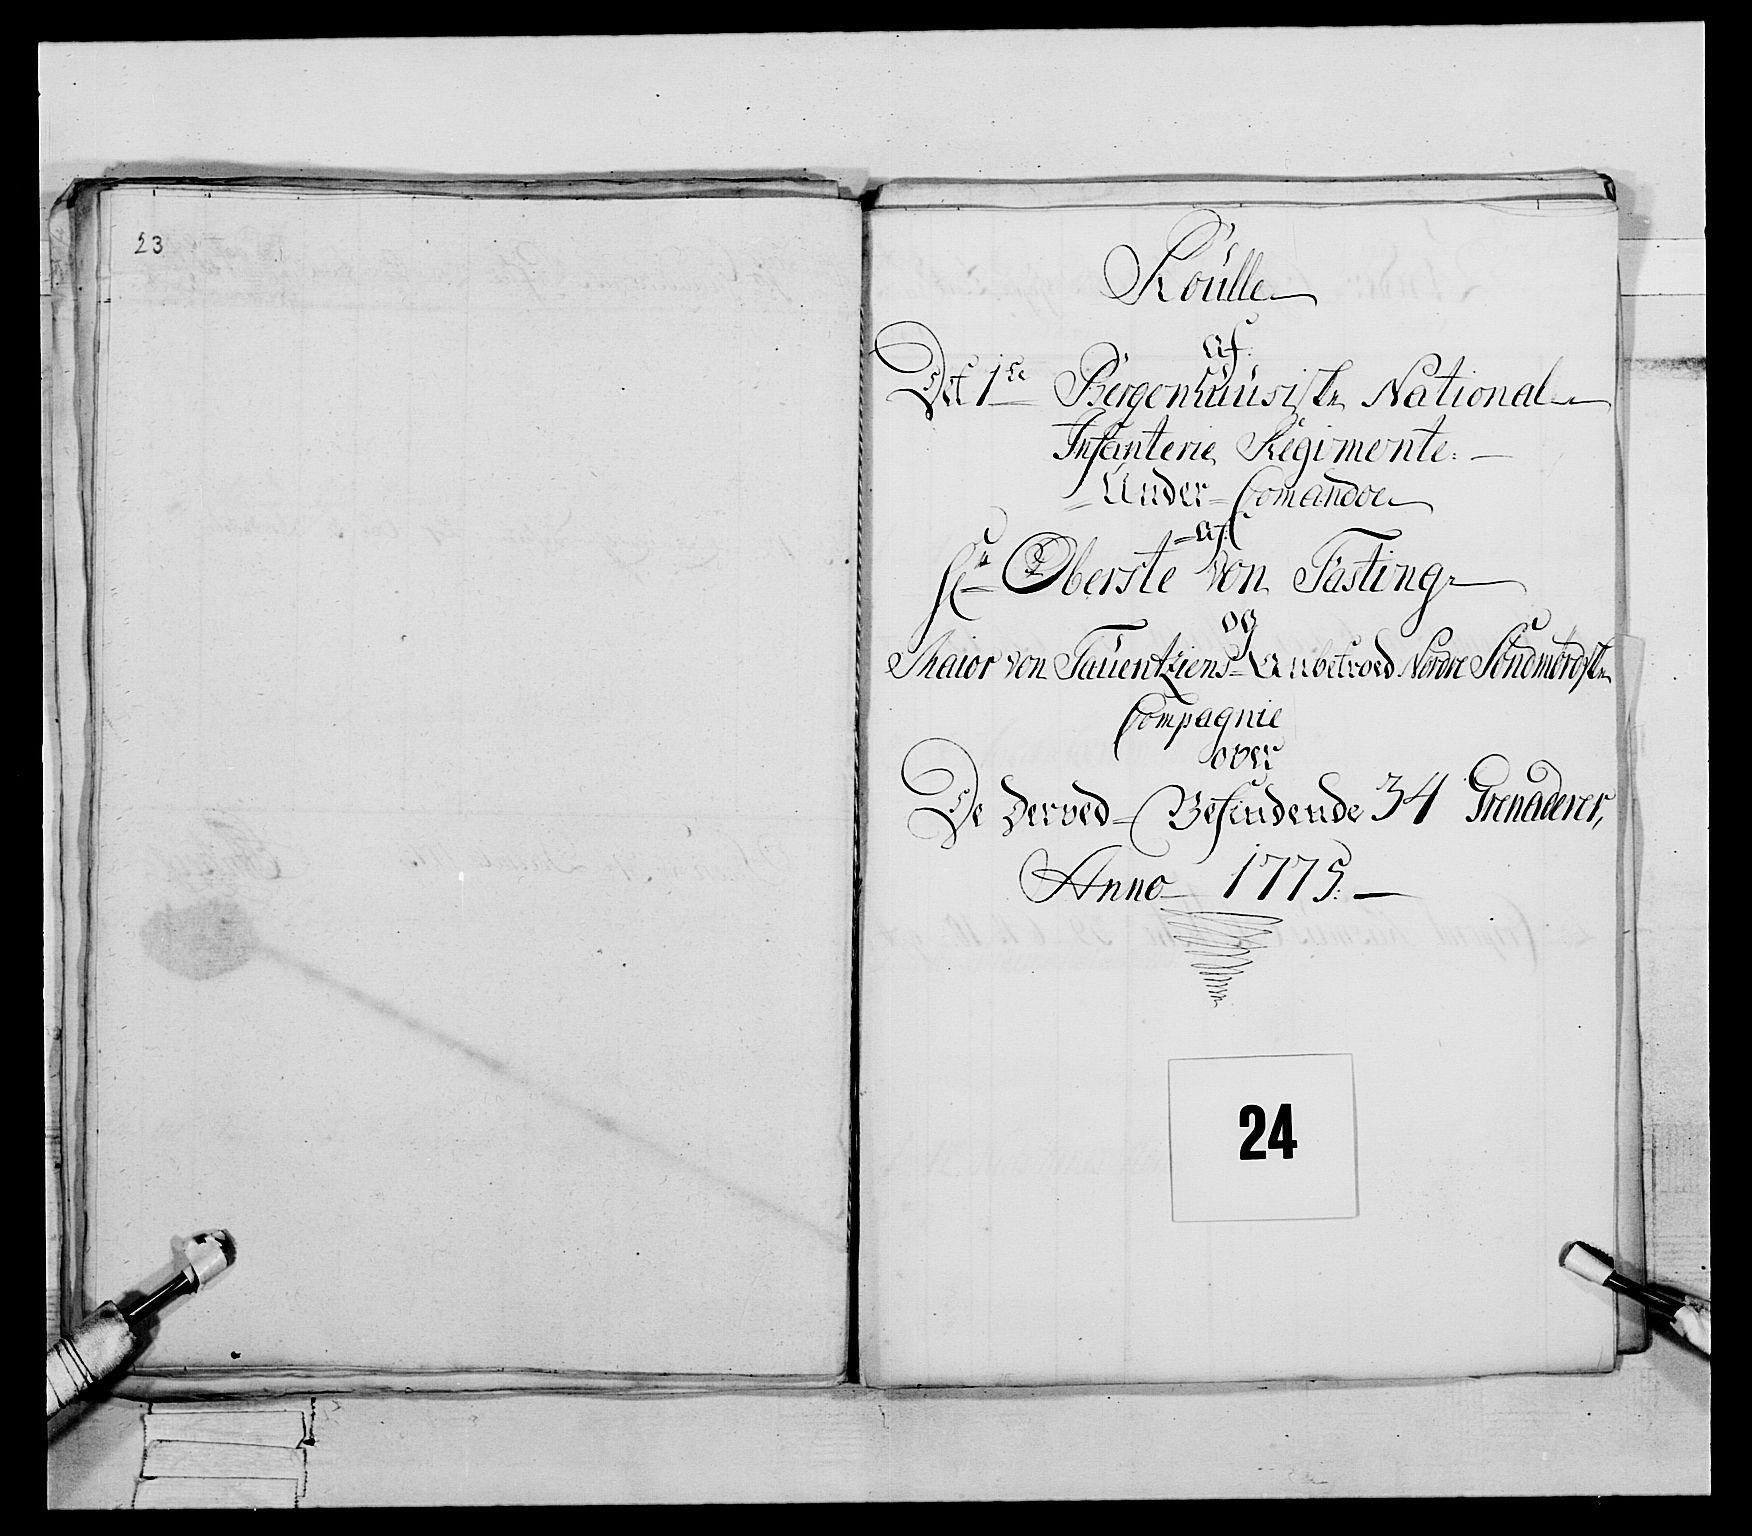 23
Roülle
af
Det 1te Bergenhuusiske National
Infanterie Regimente.
Under-Comandoe
af
Hr Oberste von Fasting
og
Maior von Taüentziens Anbetroed Nordre Söndmörske
Compagnie
over
De derved Befindende 34 Grenaderer,
Anno 1775.
24